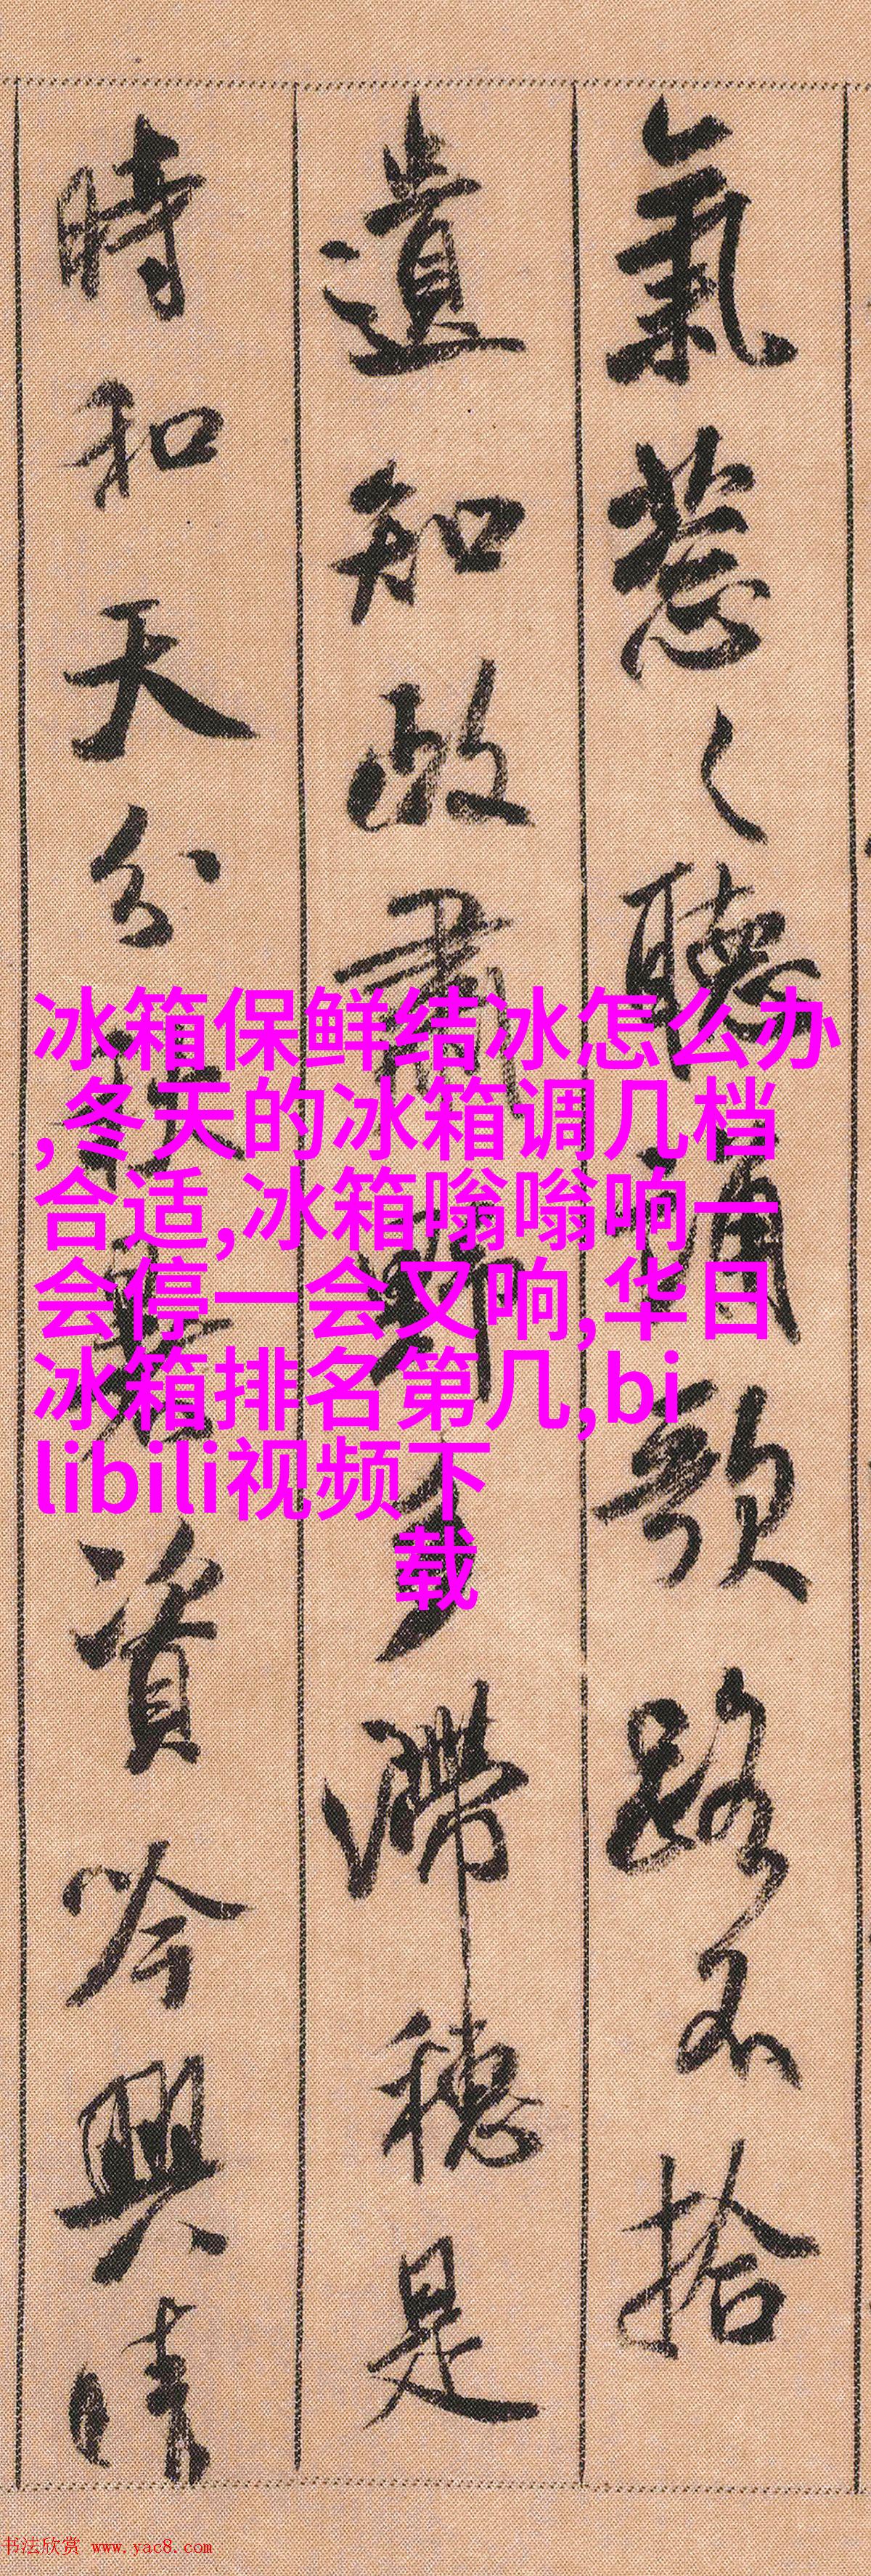 氣葱々聽誦歌路不拾
遺知政肅野多滯穗是
時和天分秋暑資吟興晴
冰箱保鲜结冰怎么办
,冬天的冰箱调几档
合适,冰箱嗡嗡响一
会停一会又响,华日
冰箱排名第几,bi
libili视频下
载
书法欣赏 www.yac8.com